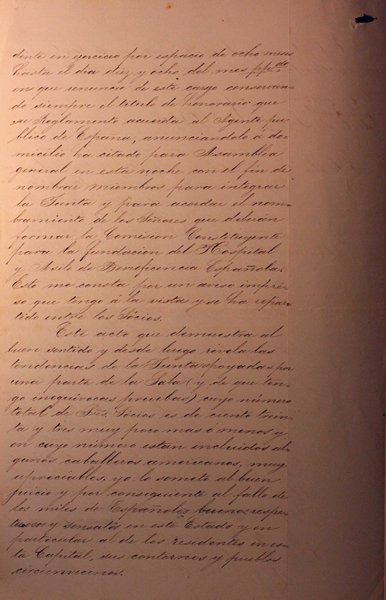 dente en ejercicio por espacio de ocho meses
hasta el dia diez y ocho del mes ppdo
en que renunció de este cargo conservan-
do siempre el título de honorario que
su Reglamento acuerda al Agente pú-
blico de España, anunciandolo á do-
micilio ha citado para Asamblea
general en esta noche con el fin de
nombrar miembros para integrar
la Junta y para acordar el nom-
bramiento de los Señores que deberán
formar la Comision Constituyente
para la fundacion del Hospital
y Asilo de Beneficencia Española.
Esto me consta por un aviso impre-
so que tengo á la vista y se ha repar-
tido entre los Sócios.
Este acto que demuestra al
buen sentido y desde luego revela las
tendencias de la Junta apoyada por
una parte de la Sala (y de que ten-
go inequivocas pruebas) cuyo número
total de Sres. Sócios es de ciento trein-
ta y tres muy poco mas ó menos y
en cuyo número estan incluidos al-
gunos caballeros americanos, muy
apreciables, yo lo someto al buen
juicio y por consiguiente al fallo de
los miles de Españoles buenos respe-
tuosos y sensatos en este Estado y en
particular al de los residentes en es-
ta Capital, sus contornos y pueblos
circunvecinos.